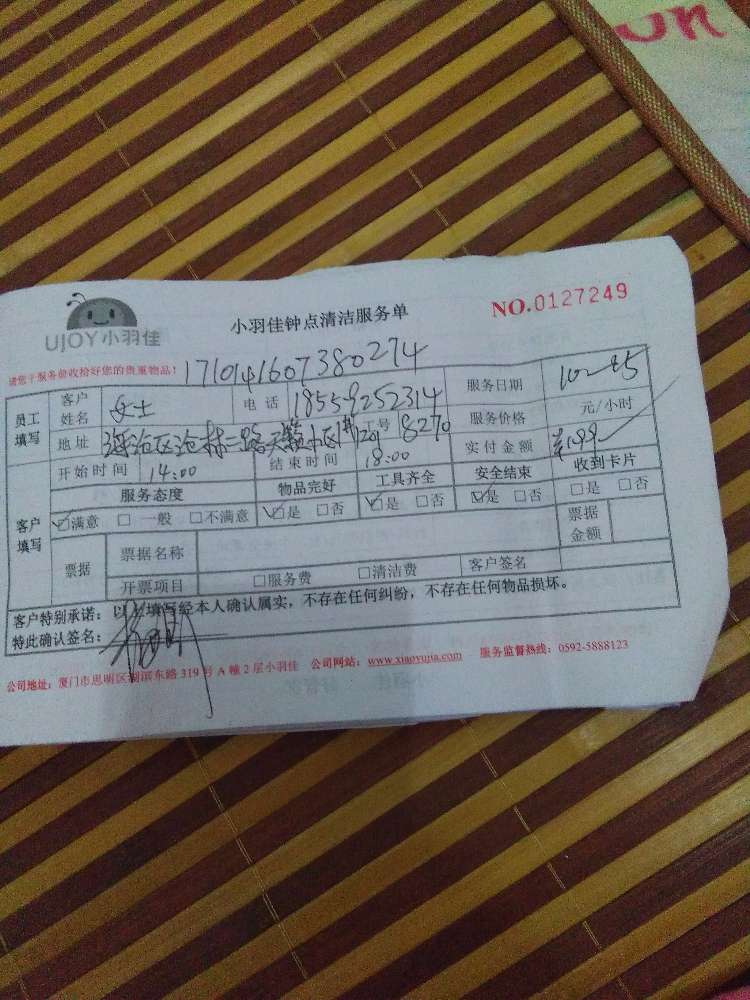 un
UJOY小羽佳
小羽佳钟点清洁服务单
NO.0127249
请您于服务前收拾好您的贵重物品!
1710141607380274
员工填写
客户姓名 女士 电话 18559252314 服务日期 10-25
地址 海沧区沧林二路天 小区1# 1201 工号 8270 服务价格 元/小时
开始时间 14:00 结束时间 18:00 实付金额 ¥199
客户填写
服务态度 物品完好 工具齐全 安全结束 收到卡片
☑满意 □ 一般 □不满意 ☑是 □否 ☑是 □否 ☑是 □否 □是 □否
票据 票据名称 票据金额
开票项目 □服务费 □清洁费 客户签名
客户特别承诺: 以上填写经本人确认属实,不存在任何纠纷,不存在任何物品损坏。
特此确认签名:
公司地址: 厦门市思明区湖滨东路 319 号 A 幢 2 层小羽佳 公司网站: www.xiaoyujia.com 服务监督热线: 0592-5888123